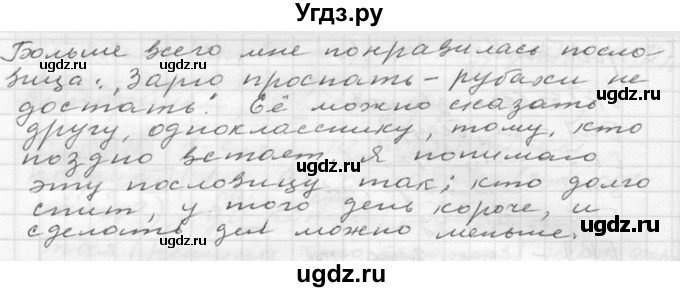 Угдз.ру
Больше всего мне понравилась посло-
вица: „Зарю проспать – рубахи не
достать". Её можно сказать
другу, однокласснику, тому, кто
поздно встает. Я понимаю
эту пословицу так: кто долго
спит, у того день короче, и
сделать дел можно меньше.
ugdz.ru ugdz.ru ugdz.ru
ugdz.ru ugdz.ru ugdz.ru
ugdz.ru ugdz.ru ugdz.ru
ugdz.ru ugdz.ru ugdz.ru